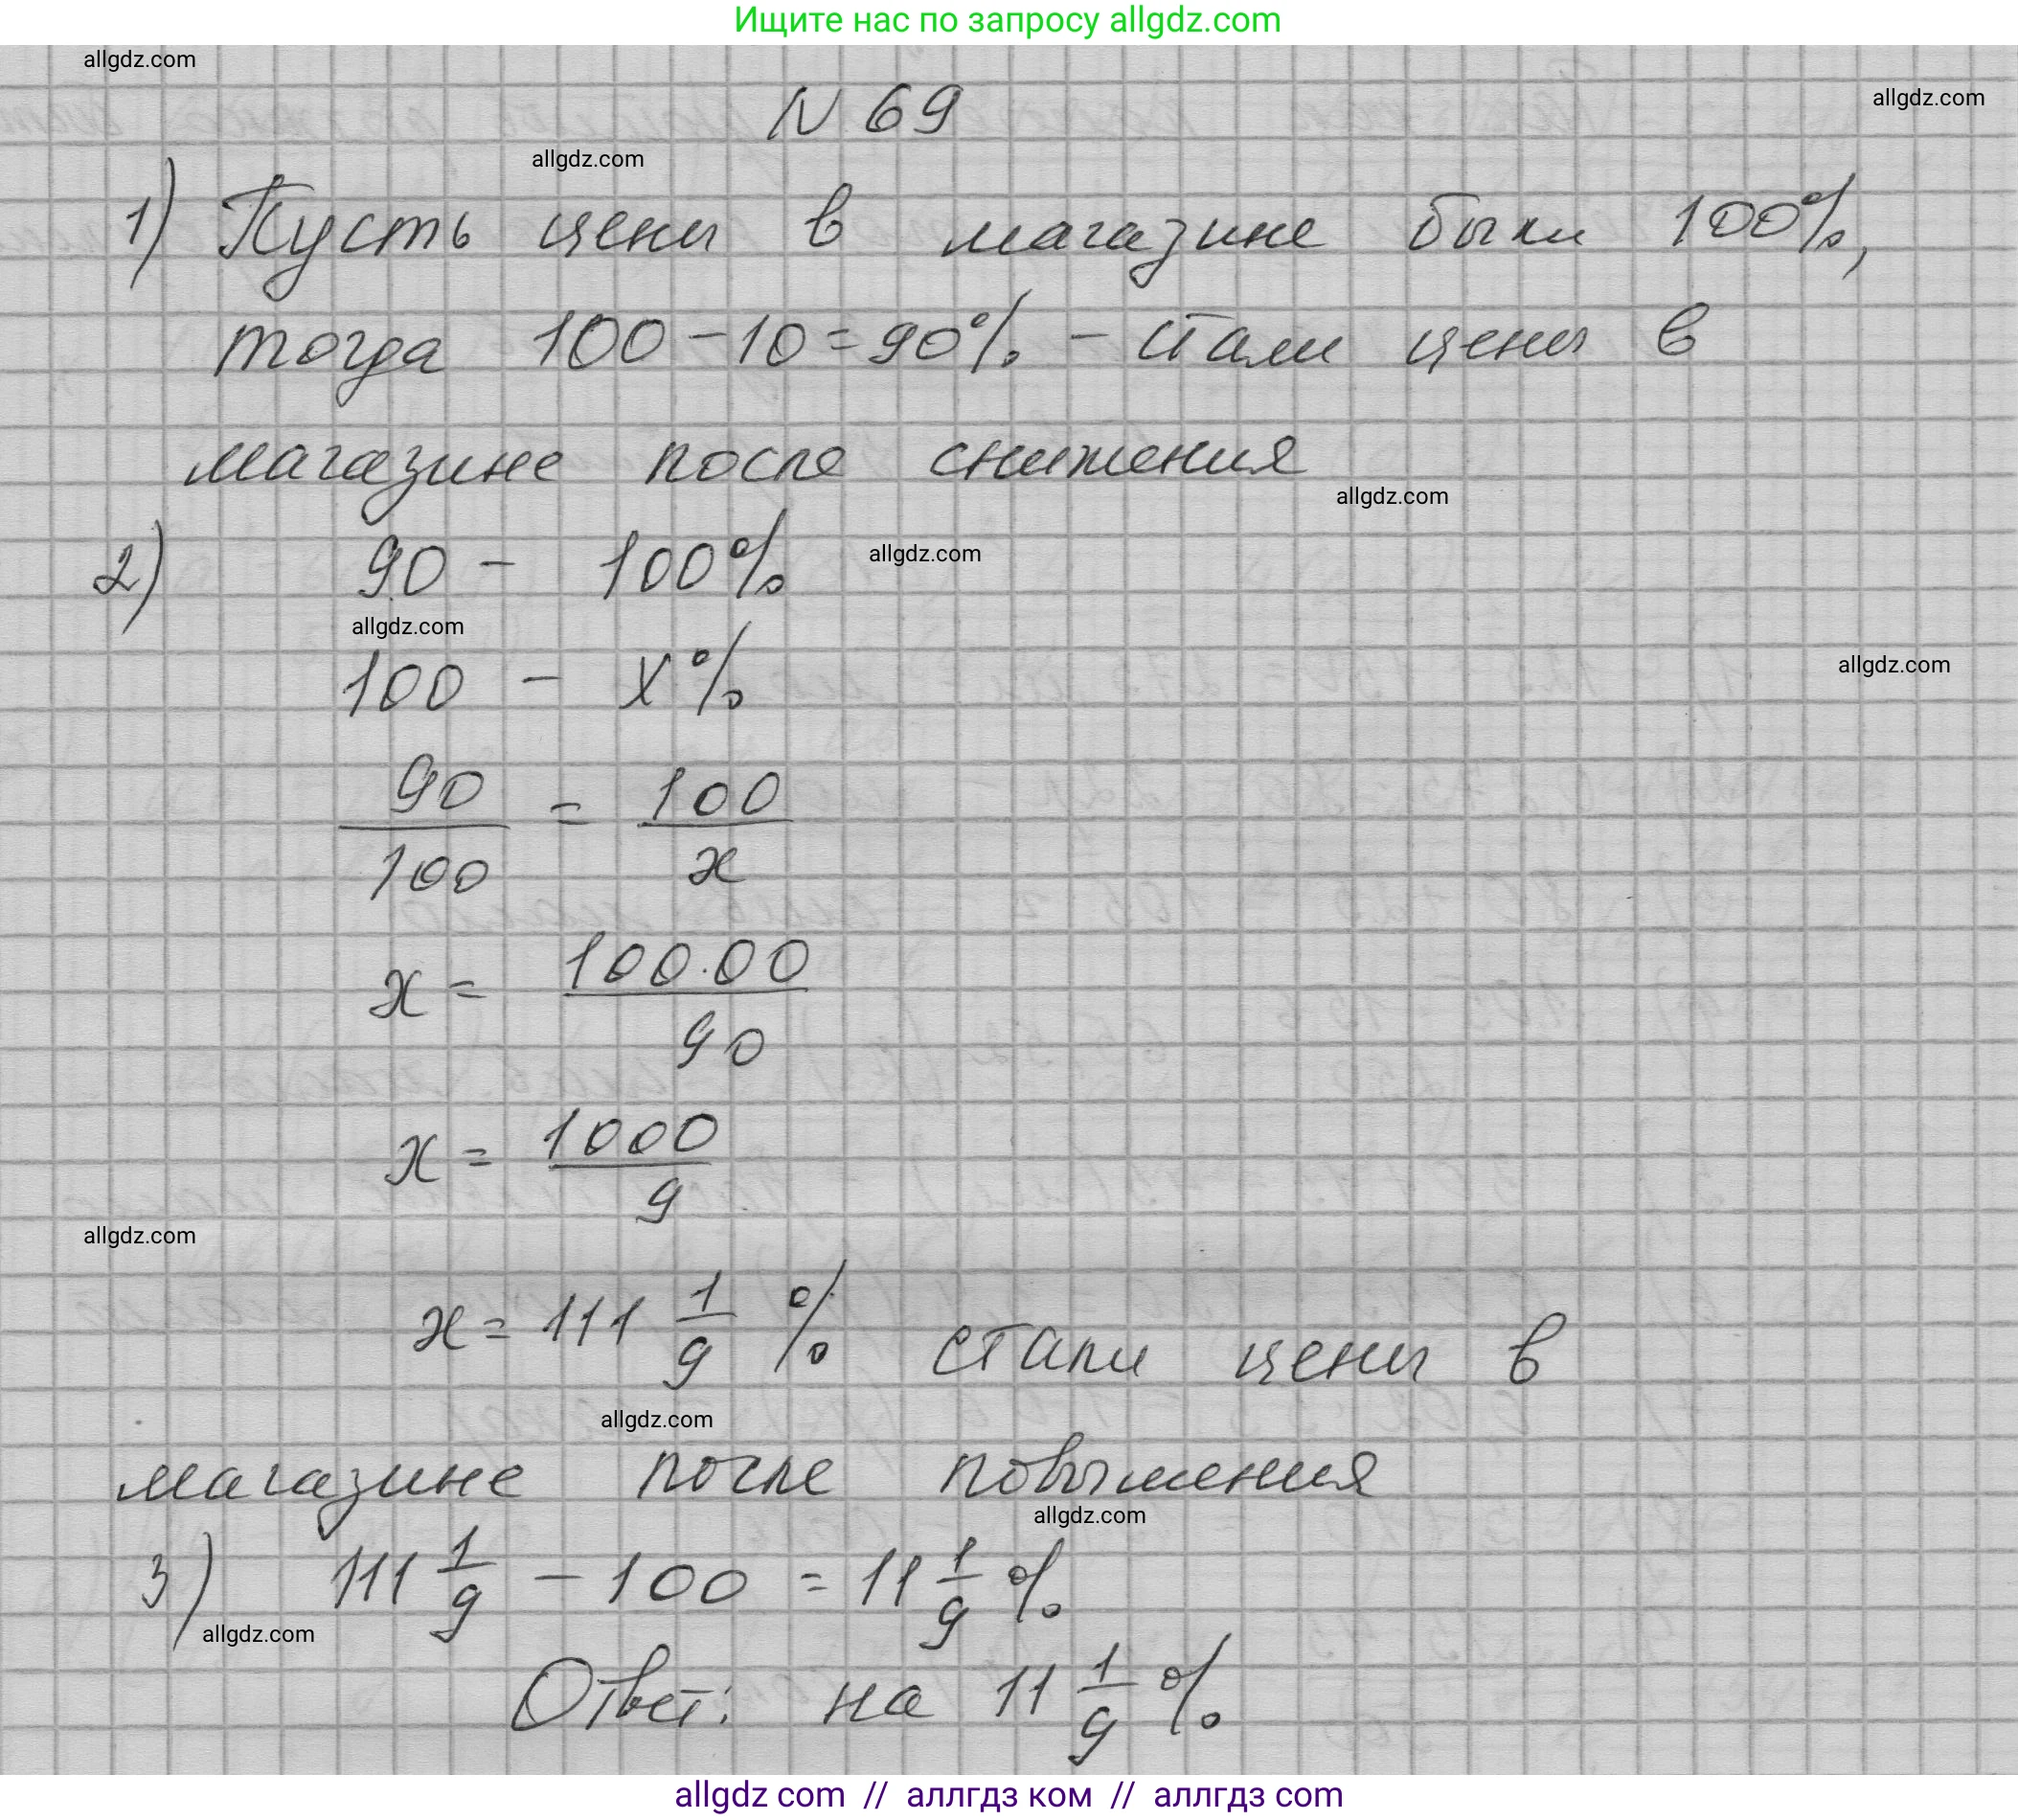 Ищите нас по запросу allgdz.com
allgdz.com
N 69
allgdz.com
allgdz.com
1) Пусть цены в магазине были 100%,
тогда 100 - 10 = 90% - стали цены в
магазине после снижения
allgdz.com
2) 90 - 100%
allgdz.com
allgdz.com
100 - x%
allgdz.com
90/100 = 100/x
x = 100·00/90
x = 1000/9
allgdz.com
x = 111 1/9 % стали цены в
allgdz.com
магазине после повышения
allgdz.com
3) 111 1/9 - 100 = 11 1/9 %
allgdz.com
Ответ: на 11 1/9 %
allgdz com // аллгдз ком // аллгдз com